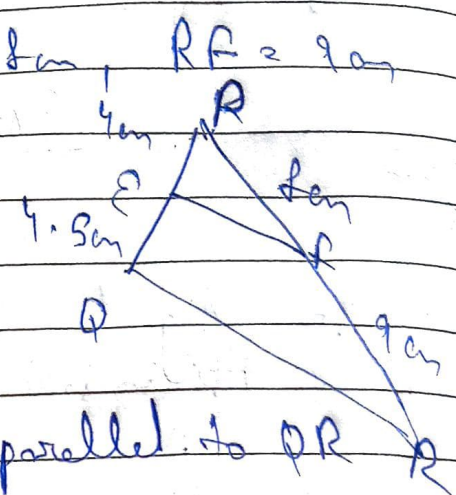 8cm, RF = 9cm
P
4cm
E
8cm
4.5cm
F
Q
9cm
parallel to QR
R